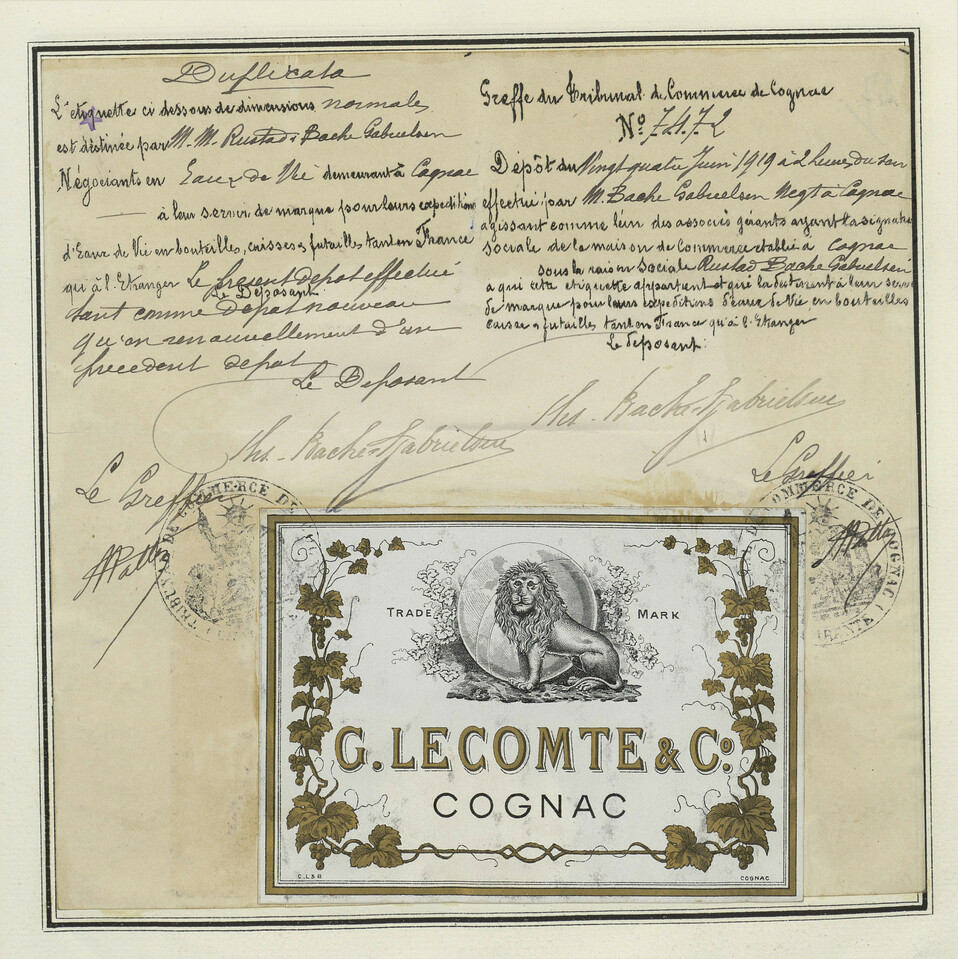 Duplicata
L'étiquette ci dessous de dimensions normales
est destinée par M. M. Rustad & Bache Gabrielsen
Négociants en Eaux de Vie demeurant à Cognac
à leur servir de marque pour leurs expeditions
d'Eaux de Vie en bouteilles, caisses & futailles tant en France
qu'à l'Etranger Le present depot effectué
Le Déposant
tant comme depot nouveau
qu'en renouvellement d'un
precedent depot
Le Deposant
Ths. Bache-Gabrielsen
Le Greffier
Greffe du Tribunal de Commerce de Cognac
No. 7.472
Dépôt du Vingt quatre Juin 1919 à 2 heures du soir
effectué par M. Bache Gabrielsen Negt à Cognac
agissant comme l'un des associés gérants ayant la signature
sociale de la maison de Commerce établie à Cognac
sous la raison sociale Rustad Bache Gabrielsen
à qui cette etiquette appartient et qui la destinent à leur servir
de marque pour leurs expeditions d'eaux de Vie en bouteilles
caisses & futailles tant en France qu'à l'Etranger
Le déposant:
Ths. Bache-Gabrielsen
Le Greffier
TRIBUNAL DE COMMERCE DE
DE COMMERCE DE COGNAC
TRADE MARK
G. LECOMTE & Co.
COGNAC
C.L & B
COGNAC